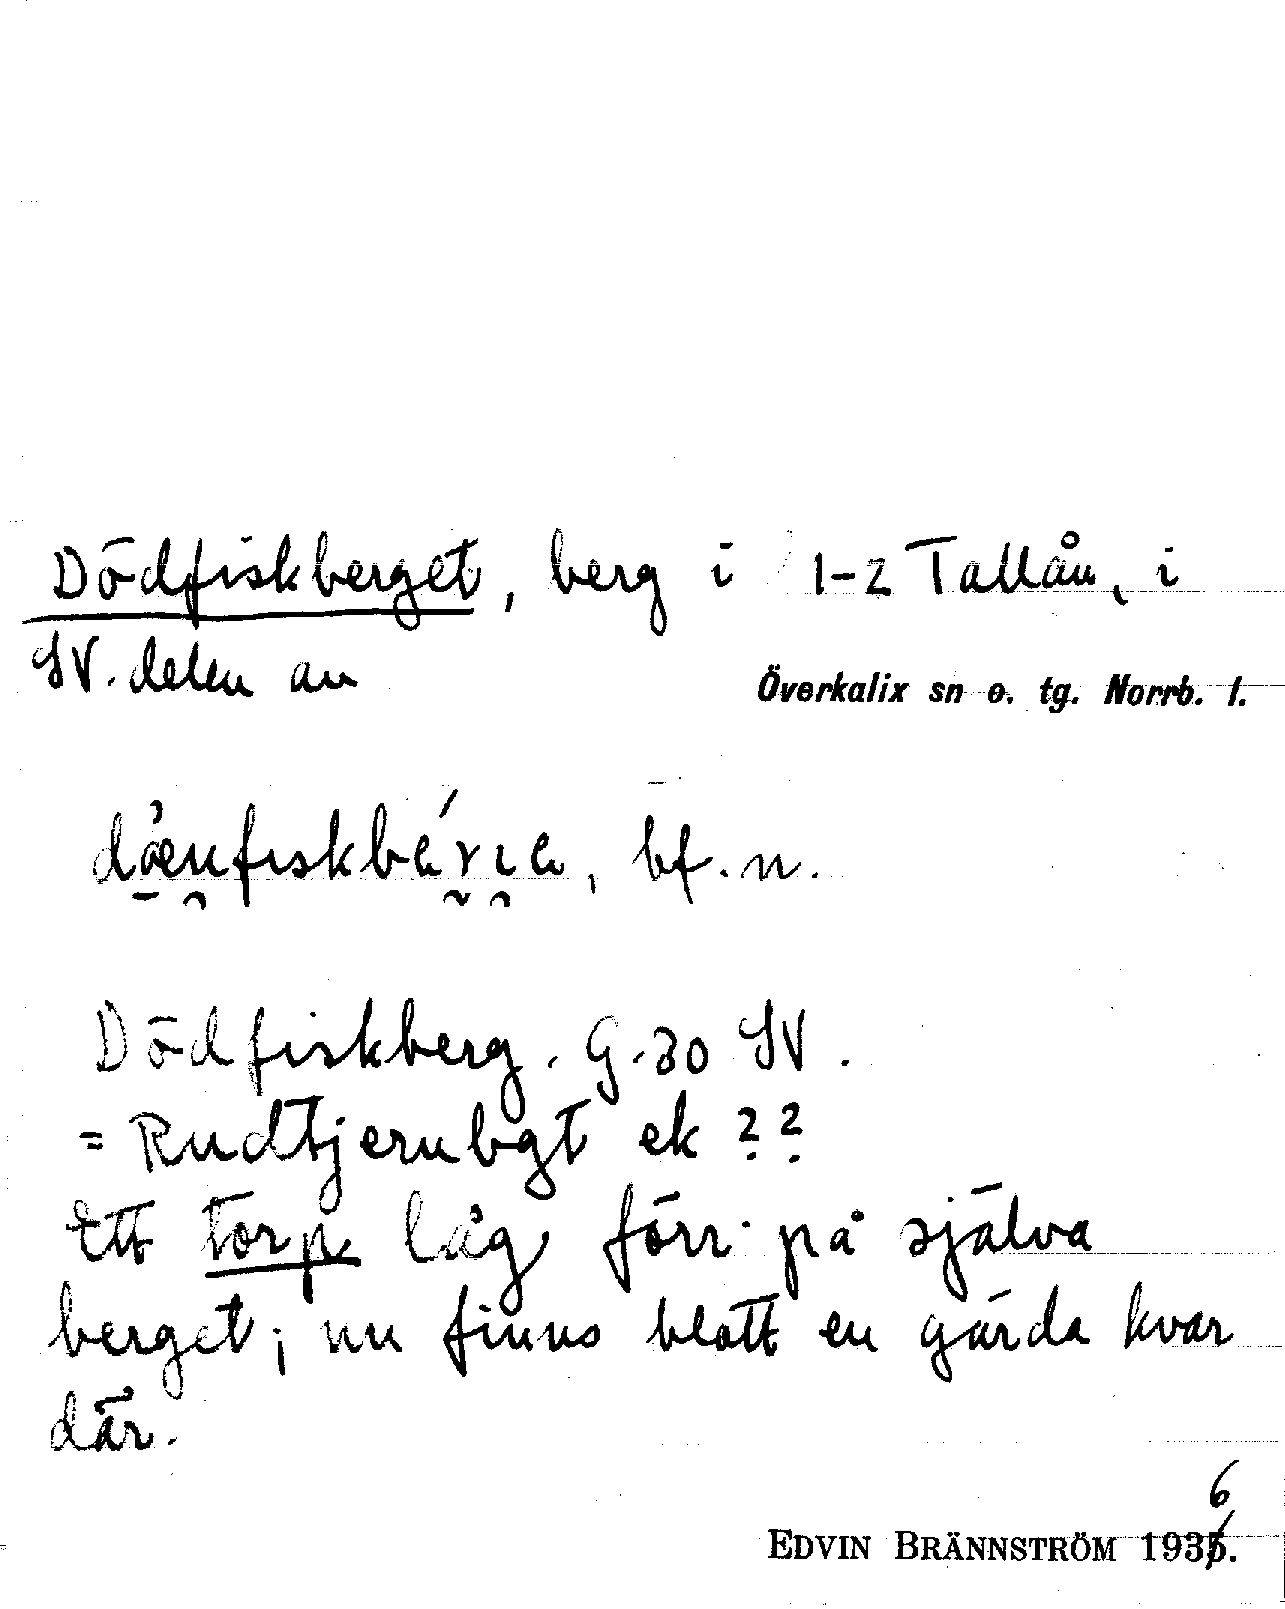 Dödfiskberget, berg i 1-2 Tallån, i
SV. delen av
Överkalix sn o. tg. Norrb. l.
bf. n.
Dödfiskberg. G. 30 SV.
= Rudtjernbgt ek ??
Ett torp låg förr på själva
berget; nu finns blott en gärda kvar
där.
6
EDVIN BRÄNNSTRÖM 1935.